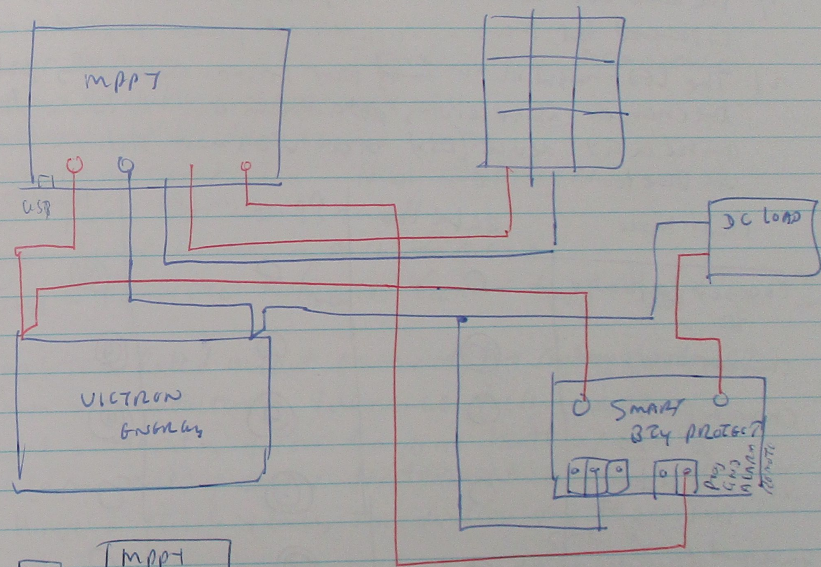 MPPT
USB
DC LOAD
VICTRON
ENERGY
SMART
BTY PROTECT
PROG
GND
ALARM
REMOTE
MPPT